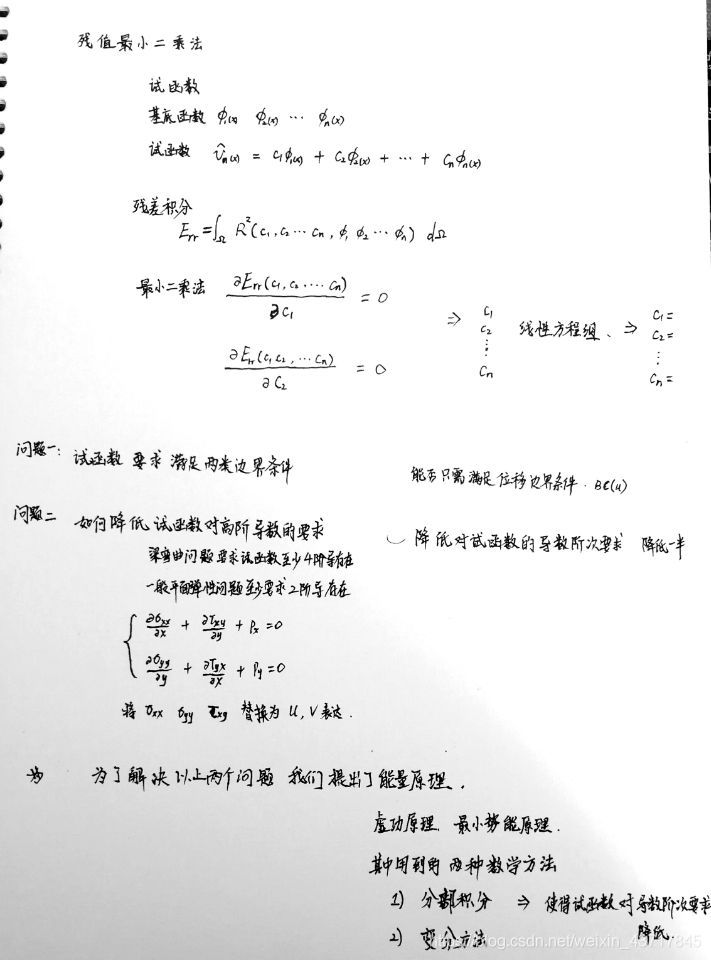 残值最小二乘法
试函数
基底函数 φ₁(x) φ₂(x) ⋯ φₙ(x)
试函数 v̂ₙ(x) = c₁φ₁(x) + c₂φ₂(x) + ⋯ + cₙφₙ(x)
残差积分
Err = ∫_Ω R²(c₁, c₂ ⋯ cₙ, φ₁ φ₂ ⋯ φₙ) dΩ
最小二乘法 ∂Err(c₁, c₂ ⋯⋯ cₙ) / ∂c₁ = 0
∂Err(c₁ c₂, ⋯ cₙ) / ∂c₂ = 0
⇒ c₁ c₂ ⋮ cₙ 线性方程组、 ⇒ c₁= c₂= ⋮ cₙ=
问题一: 试函数 要求 满足两类边界条件
能否只需满足位移边界条件. BC(u)
问题二 如何降低 试函数对高阶导数的要求
降低对试函数的导数阶次要求 降低一半
梁弯曲问题要求试函数至少4阶导存在
一般平面弹性问题至少要求2阶导存在
∂σxx/∂x + ∂τxy/∂y + Px = 0
∂σyy/∂y + ∂τyx/∂x + Py = 0
将 σxx σyy τxy 替换为 u, v 表达.
为 为了解决以上两个问题 我们提出了能量原理.
虚功原理. 最小势能原理.
其中用到的 两种数学方法
1) 分部积分 ⇒ 使得试函数对导数阶次要求
降低.
2) 变分方法